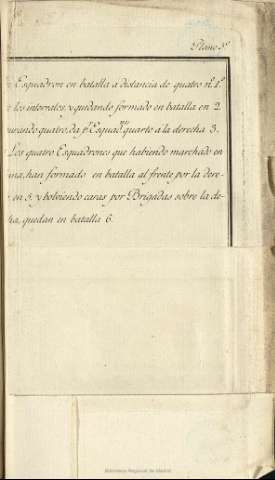 Plano 3º
Esquadron en batalla á distancia de quatro nº 1.º
los intervalos, y quedando formado en batalla en 2.
quatro, da pr Esquadn quarto á la derecha 3.
Los quatro Esquadrones que habiendo marchado en
na, han formado en batalla al frente por la dere-
en 5. y bolviendo caras por Brigadas sobre la de-
ha, quedan en batalla 6.
Biblioteca Regional de Madrid